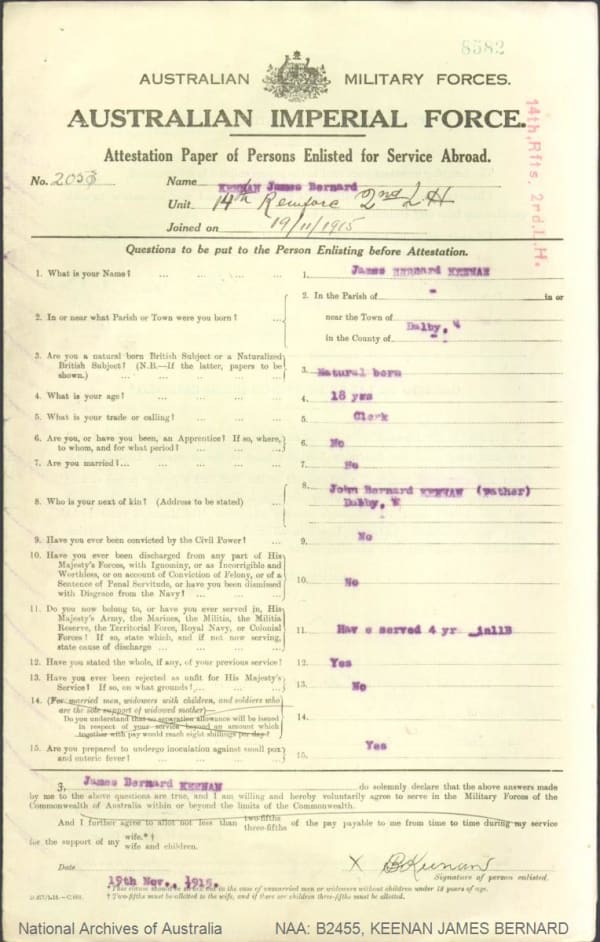 8582
AUSTRALIAN MILITARY FORCES.
AUSTRALIAN IMPERIAL FORCE.
Attestation Paper of Persons Enlisted for Service Abroad.
14th, Rfts. 2rd. L.H.
No. 2053 Name KEENAN James Bernard
Unit 14th Reinforc 2nd L H
Joined on 19/11/1915
Questions to be put to the Person Enlisting before Attestation.
1. What is your Name? ... ... ... ... 1. James BERNARD KEENAN
2. In or near what Parish or Town were you born? ... 2. In the Parish of - in or
near the Town of Dalby,
in the County of -
3. Are you a natural born British Subject or a Naturalized
British Subject? (N.B.—If the latter, papers to be
shown.) ... ... ... ... 3. Natural born
4. What is your age? ... ... ... ... 4. 18 yrs
5. What is your trade or calling? ... ... ... 5. Clerk
6. Are you, or have you been, an Apprentice? If so, where,
to whom, and for what period? ... ... ... 6. No
7. Are you married?... ... ... ... 7. No
8. Who is your next of kin? (Address to be stated) ... 8. John Bernard KEENAN (Father)
Dalby,
9. Have you ever been convicted by the Civil Power? ... 9. No
10. Have you ever been discharged from any part of His
Majesty's Forces, with Ignominy, or as Incorrigible and
Worthless, or on account of Conviction of Felony, or of a
Sentence of Penal Servitude, or have you been dismissed
with Disgrace from the Navy? ... ... ... 10. No
11. Do you now belong to, or have you ever served in, His
Majesty's Army, the Marines, the Militia, the Militia
Reserve, the Territorial Force, Royal Navy, or Colonial
Forces? If so, state which, and if not now serving,
state cause of discharge ... ... ... 11. Hav e served 4 yr
12. Have you stated the whole, if any, of your previous service? 12. Yes
13. Have you ever been rejected as unfit for His Majesty's
Service? If so, on what grounds?... ... ... 13. No
14. (For married men, widowers with children, and soldiers who
are the sole support of widowed mother)—
Do you understand that no separation allowance will be issued
in respect of your service beyond an amount which
together with pay would reach eight shillings per day? 14.
15. Are you prepared to undergo inoculation against small pox
and enteric fever? ... ... ... ... 15. Yes
I, James Bernard KEENAN do solemnly declare that the above answers made
by me to the above questions are true, and I am willing and hereby voluntarily agree to serve in the Military Forces of the
Commonwealth of Australia within or beyond the limits of the Commonwealth.
And I further agree to allot not less than two-fifths three-fifths of the pay payable to me from time to time during my service
for the support of my wife.*† wife and children.
Date 19th Nov., 1915. X JBKeenan
Signature of person enlisted.
* This clause should be struck out in the case of unmarried men or widowers without children under 18 years of age.
† Two-fifths must be allotted to the wife, and if there are children three-fifths must be allotted.
National Archives of Australia NAA: B2455, KEENAN JAMES BERNARD